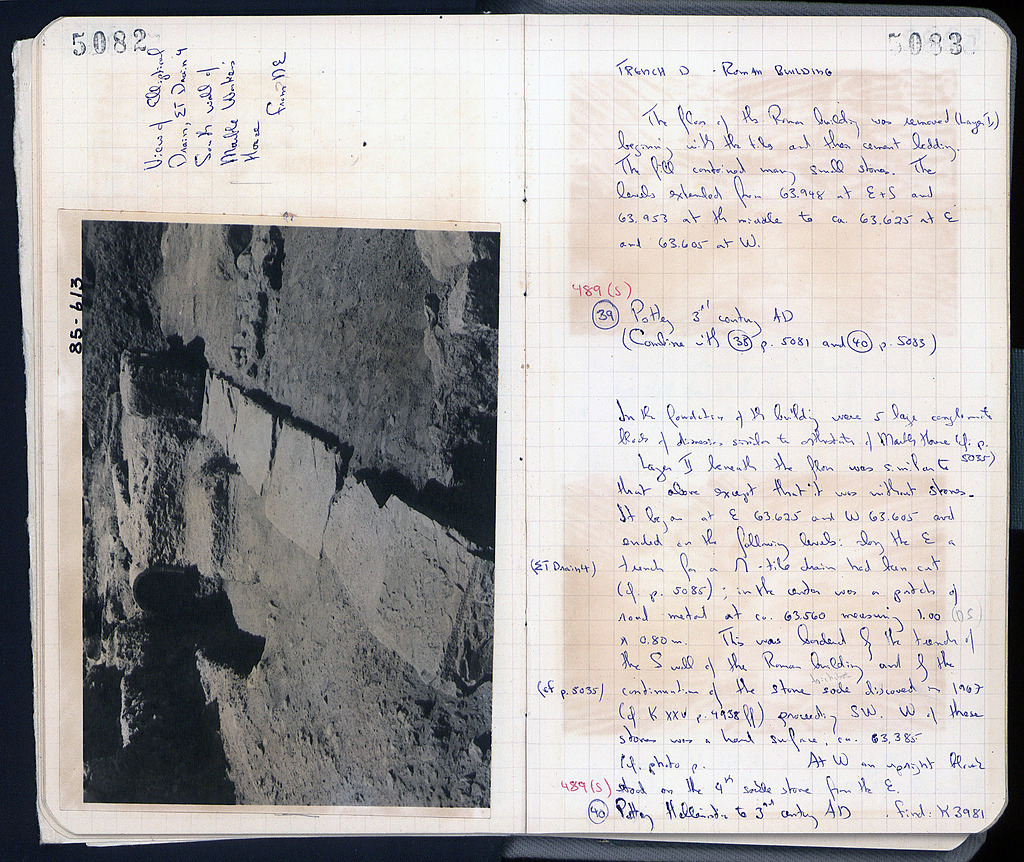 5082
View of Elliptical
Drain, ΣΤ Drain 4
South wall of
Marble Workers
House from NE
85-613
5083
TRENCH D - ROMAN BUILDING
The floor of the Roman building was removed (Layer I)
beginning with the tiles and then cement bedding.
The fill contained many small stones. The
levels extended from 63.948 at E+S and
63.953 at the middle to ca. 63.625 at E
and 63.605 at W.
489 (S)
39 Pottery 3rd century AD
(Combine with 38 p. 5081 and 40 p. 5083)
In the foundation of the building were 5 large conglomerate
blocks of dimensions similar to orthostats of Marble House (cf. p.
5035)
Layer II beneath the floor was similar to
that above except that it was without stones.
It began at E 63.625 and W 63.605 and
ended on the following levels: along the E a
(ΣΤ Drain 4) trench for a Π-tile drain had been cut
(cf p. 5085); in the center was a patch of
road metal at ca. 63.560 measuring 1.00 (NS)
x 0.80 m. This was bordered by the trench of
the S wall of the Roman building and by the
(cf p. 5035) continuation of the stone socle discovered in 1967
(cf K XXV p. 4938 ff) proceeding SW. W of these
stones was a hard surface, ca. 63.385
(cf. photo p. At W an upright block
489 (S) stood on the 4th socle stone from the E.
40 Pottery Hellenistic to 3rd century AD . Find: K 3981